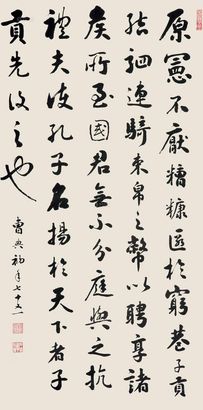 原憲不厭糟糠匿於窮巷子貢
結駟連騎束帛之幣以聘享諸
侯所至國君無不分庭與之抗
禮夫使孔子名揚於天下者子
貢先後之也
典初年七十